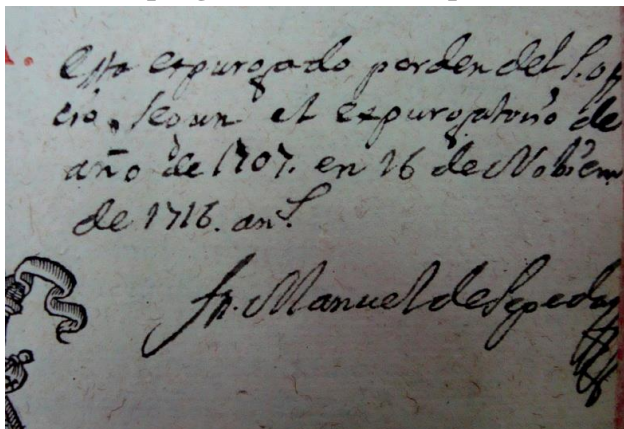 esta expurgado porden del S. ofi
cio, segun el expurgatorio de
año de 1707. en 16 de Nobiem
de 1716. an.s
fr. Manuel de Sepeda